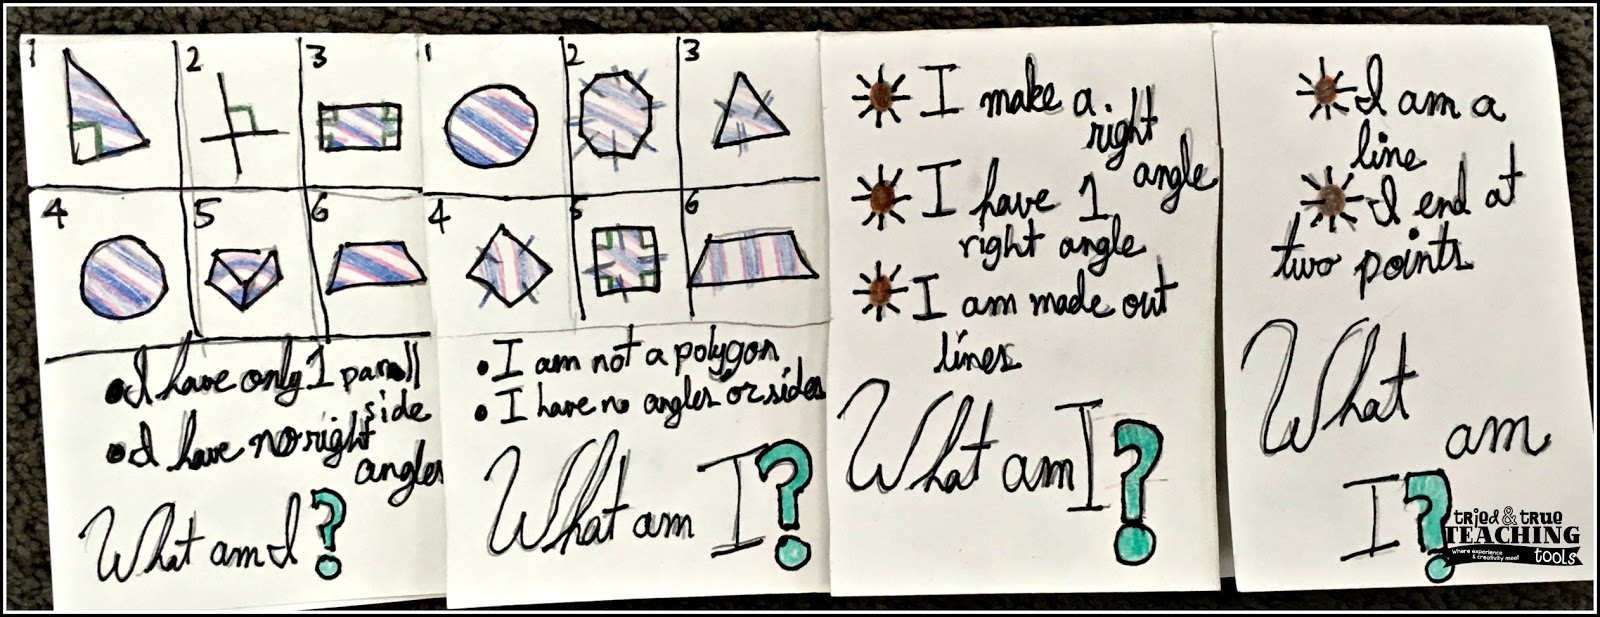 1 2 3
4 5 6
I have only 1 parall
side
I have no right
angles
What am I?
1 2 3
4 5 6
I am not a polygon
I have no angles or sides
What am I?
I make a.
right
angle
I have 1
right angle
I am made out
lines
What am I?
I am a
line
I end at
two points
What
am
I?
tried & true
TEACHING
tools
where experience
& creativity meet